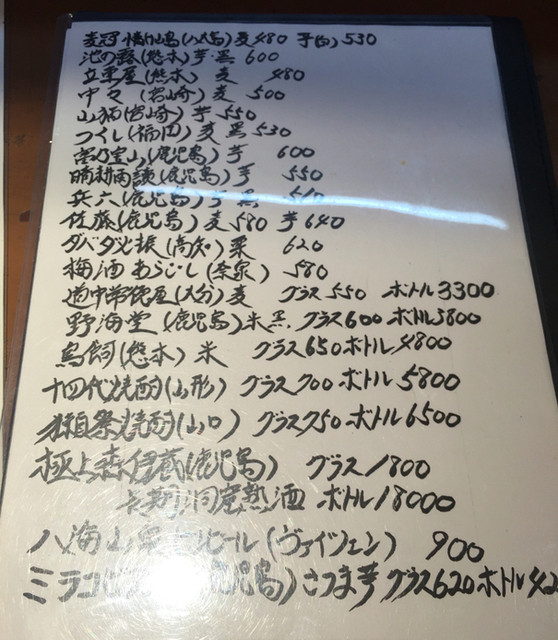 麦冠 情け嶋(八丈島) 麦480 芋(白)530
池の露(熊本) 芋・黒 600
(熊本) 麦 480
中々(宮崎) 麦 500
山猪(宮崎) 芋 550
つくし(福岡) 麦 黒 530
富乃宝山(鹿児島) 芋 600
晴耕雨讀(鹿児島) 芋 550
兵六(鹿児島) 芋 黒
佐藤(鹿児島) 麦580 芋640
ダバダ火振(高知) 栗 620
梅酒 あらごし(奈良) 580
道中常徳屋(大分) 麦 グラス550 ボトル3300
野海棠(鹿児島) 米 黒 グラス600 ボトル3800
鳥飼(熊本) 米 グラス650 ボトル4800
十四代焼酎(山形) グラス700 ボトル5800
獺祭焼酎(山口) グラス750 ボトル6500
極上森伊蔵(鹿児島) グラス1800
長期洞窟熟酒 ボトル18000
八海山 ビール(ヴァイツェン) 900
ミラコ 鹿児島) さつま芋 グラス620 ボトル